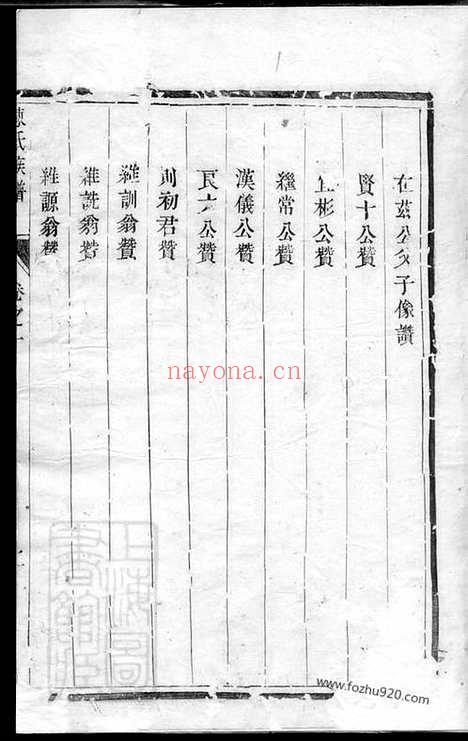 在茲公父子像讚
賢十公贊
上彬公贊
繼常公贊
漢儀公贊
良六公贊
則初君贊
維訓翁贊
維詵翁贊
維源翁贊
陳氏族譜
卷之一
nayona.cn
www.fozhu920.com